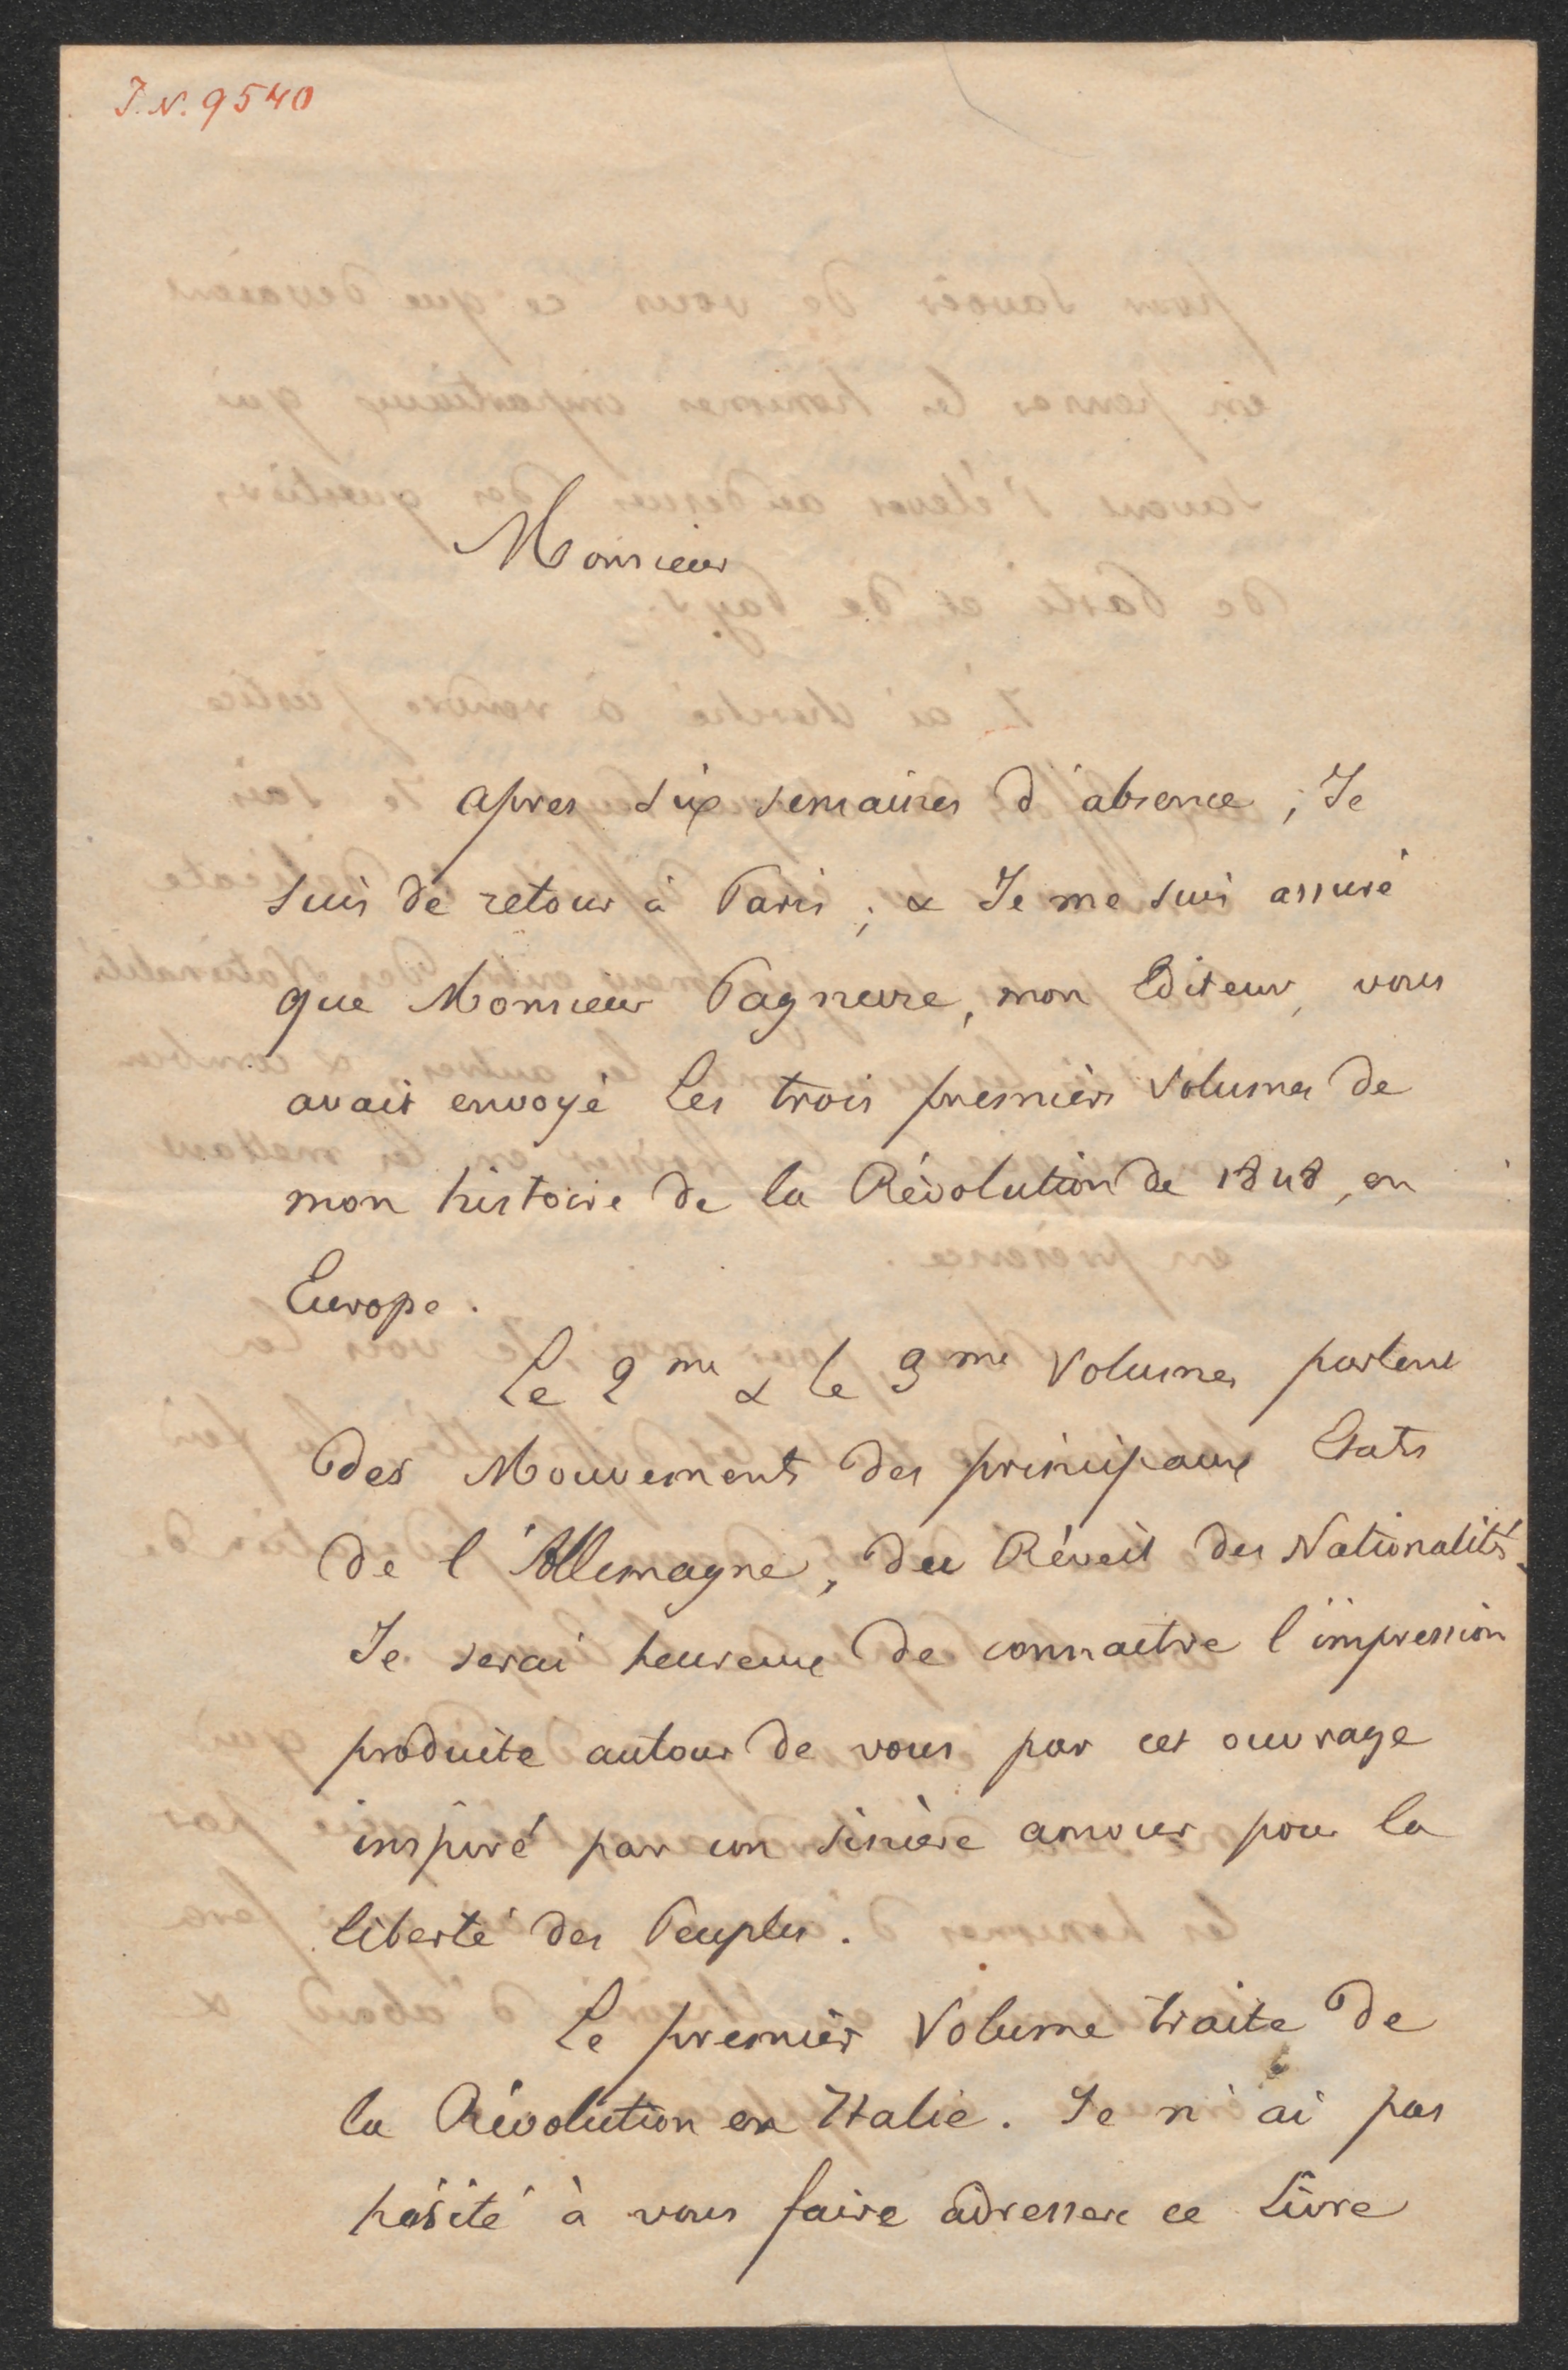 I.N. 9540
Monsieur
apres six semaines d'absence, Je
suis de retour à Paris; & Je me suis assuré
que Monsieur Pagnerre, mon Editeur, vous
avait envoyé Les trois premiers Volumes de
mon histoire de la Révolution de 1848, en
Europe.
Le 2me & le 3me Volumes parlent
des Mouvements des principaux Etats
de l'Allemagne, du Réveil des Nationalités.
Je serai heureux de connaitre l'impression
produite autour de vous par cet ouvrage
inspiré par un sincère amour pour la
liberté des Peuples.
Le premier Volume traite de
la Révolution en Italie. Je n'ai pas
hésité à vous faire adresser ce Livre